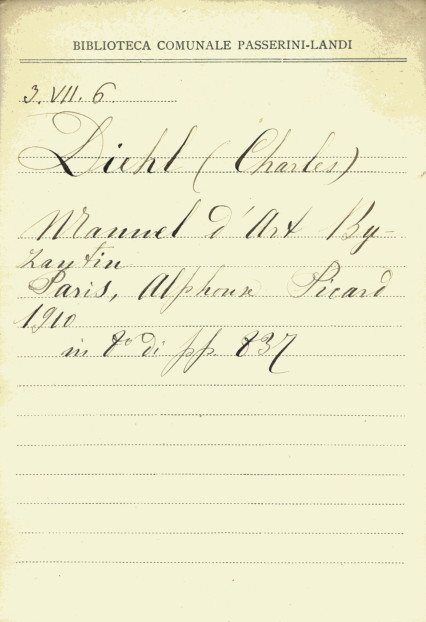 BIBLIOTECA COMUNALE PASSERINI-LANDI
3. VII. 6
Diehl (Charles)
Manuel d'Art By-
zantin
Paris, Alphonse Picard
1910
in 8º di pp. 837